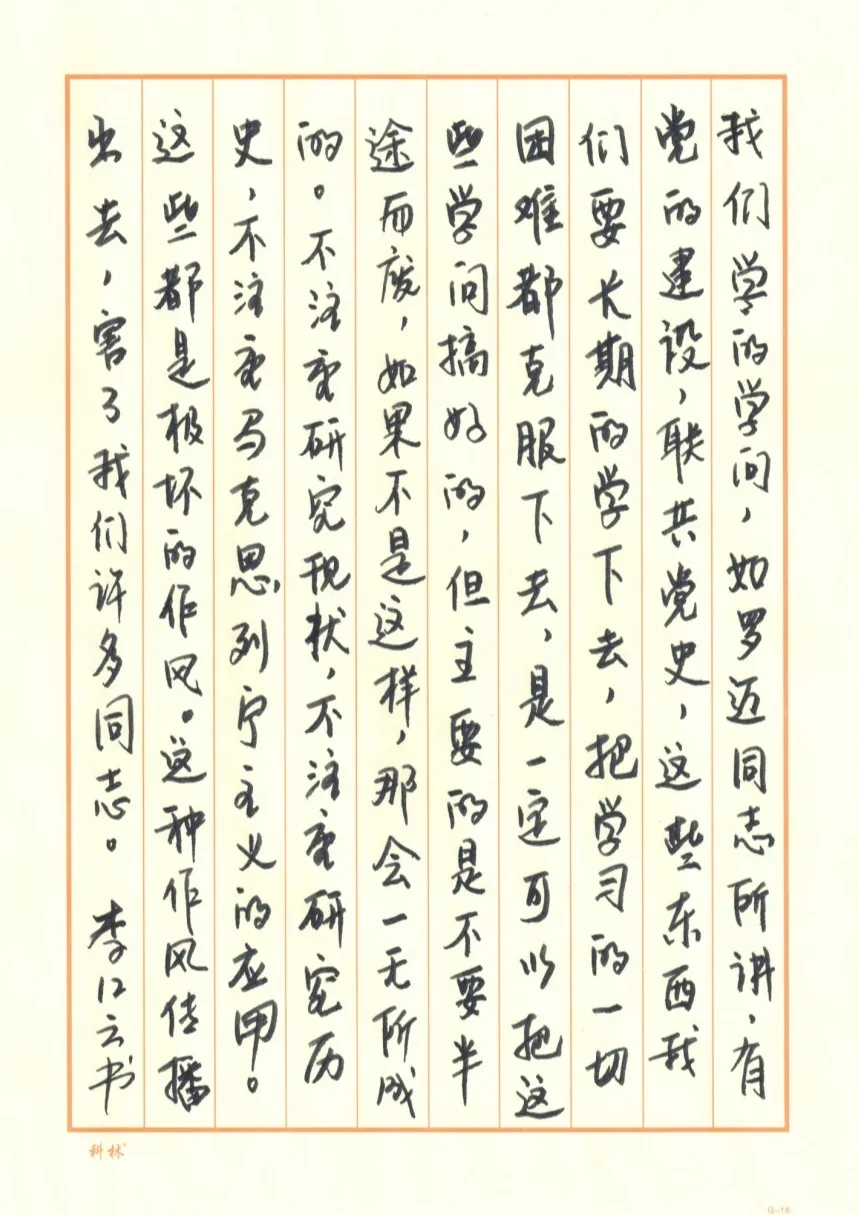 我们学的学问，如罗迈同志所讲，有
党的建设，联共党史，这些东西我
们要长期的学下去，把学习的一切
困难都克服下去，是一定可以把这
些学问搞好的，但主要的是不要半
途而废，如果不是这样，那会一无所成
的。不注重研究现状，不注重研究历
史，不注重马克思列宁主义的应用。
这些都是极坏的作风。这种作风传播
出去，害了我们许多同志。 李江云书
科林
G-16